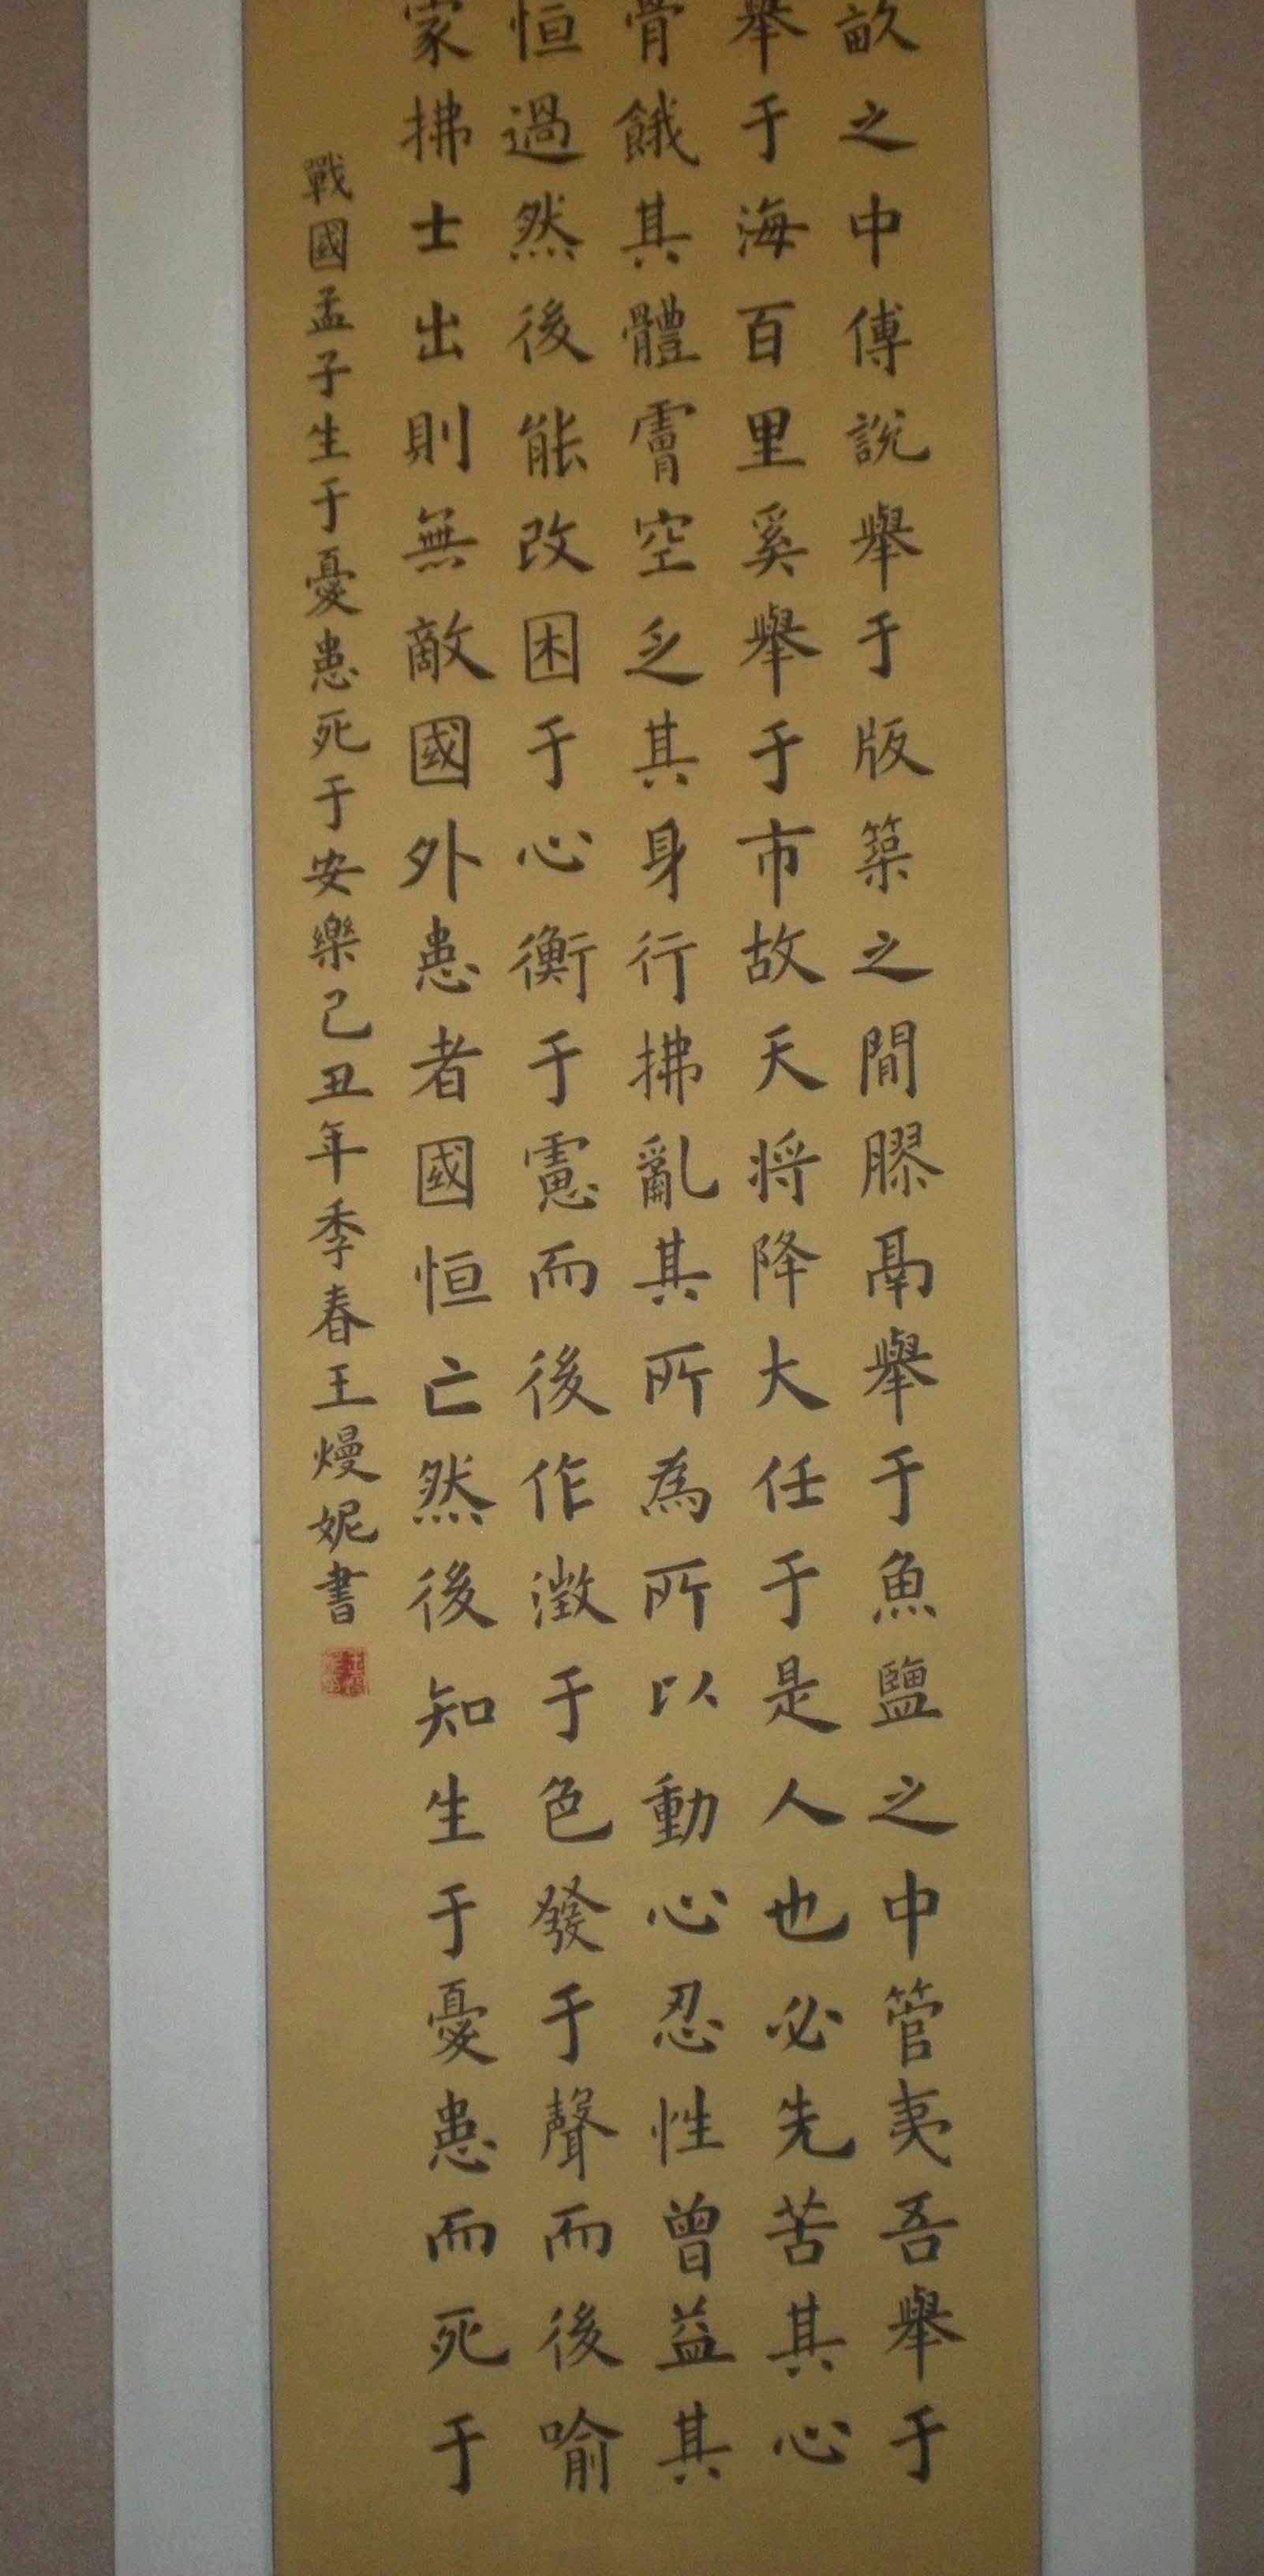 畝之中傅説舉于版築之間膠鬲舉于魚鹽之中管夷吾舉于
舉于海百里奚舉于市故天将降大任于是人也必先苦其心
骨餓其體膚空乏其身行拂亂其所為所以動心忍性曾益其
恒過然後能改困于心衡于慮而後作澂于色發于聲而後喻
家拂士出則無敵國外患者國恒亡然後知生于憂患而死于
戰國孟子生于憂患死于安樂己丑年季春王熳妮書